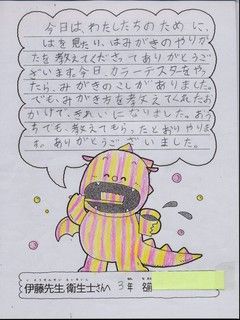 今日は、わたしたちのために、
はを見たり、はみがきのやりか
たを教えてくださってありがとうご
ざいます。今日、カラーテスターをやっ
たら、みがきのこしがありました。
でも、みがき方を教えてくれたおか
げで、きれいになりました。おう
ちでも、教えてもらったとおりやりま
す。ありがとうございました。
伊藤先生、衛生士さんへ 3年 名前